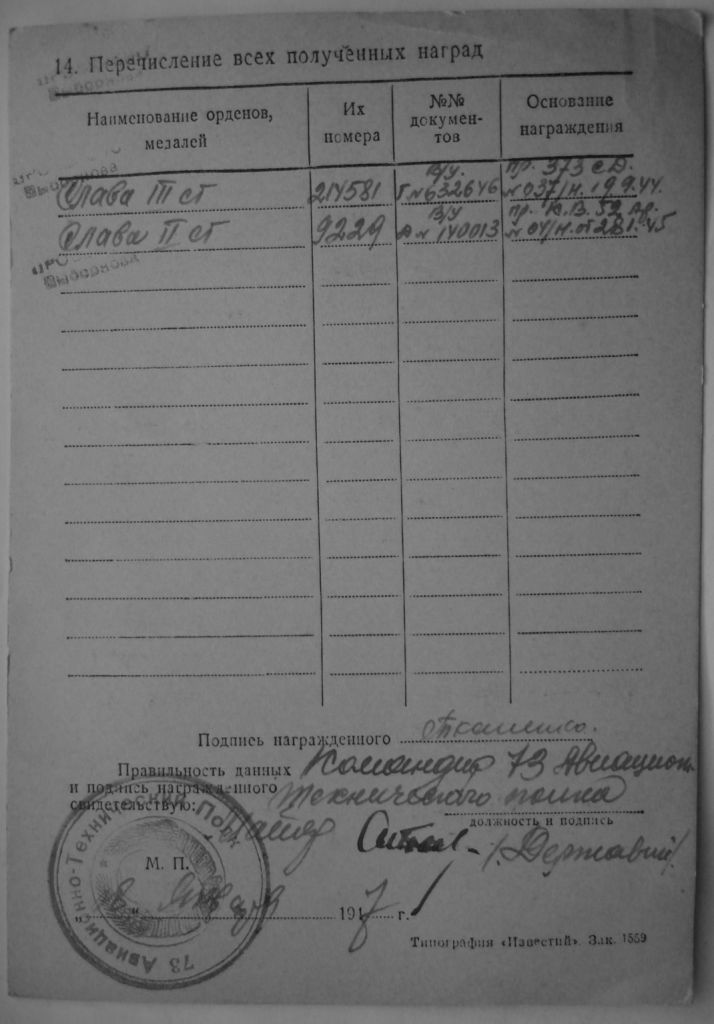 14. Перечисление всех полученных наград
Наименование орденов, медалей
Их номера
№№ докумен-тов
Основание награждения
Слава III ст 214581 в/у. Г №632646 пр. 373 с.д. №037/н. 19.9.44.
Слава II ст 9229 в/у А № 140013 пр. 52 ар. № 04/н. от 28.1.45
Подпись награжденного Ткаченко.
Правильность данных Командир 73 Авиационн.
и подпись награжденного Технического полка
свидетельствую:
должность и подпись
Майор /Державин/
М. П.
„8 “ Января 1947 г.
73 Авиационно-Технический Полк
Типография «Известий». Зак. 1559